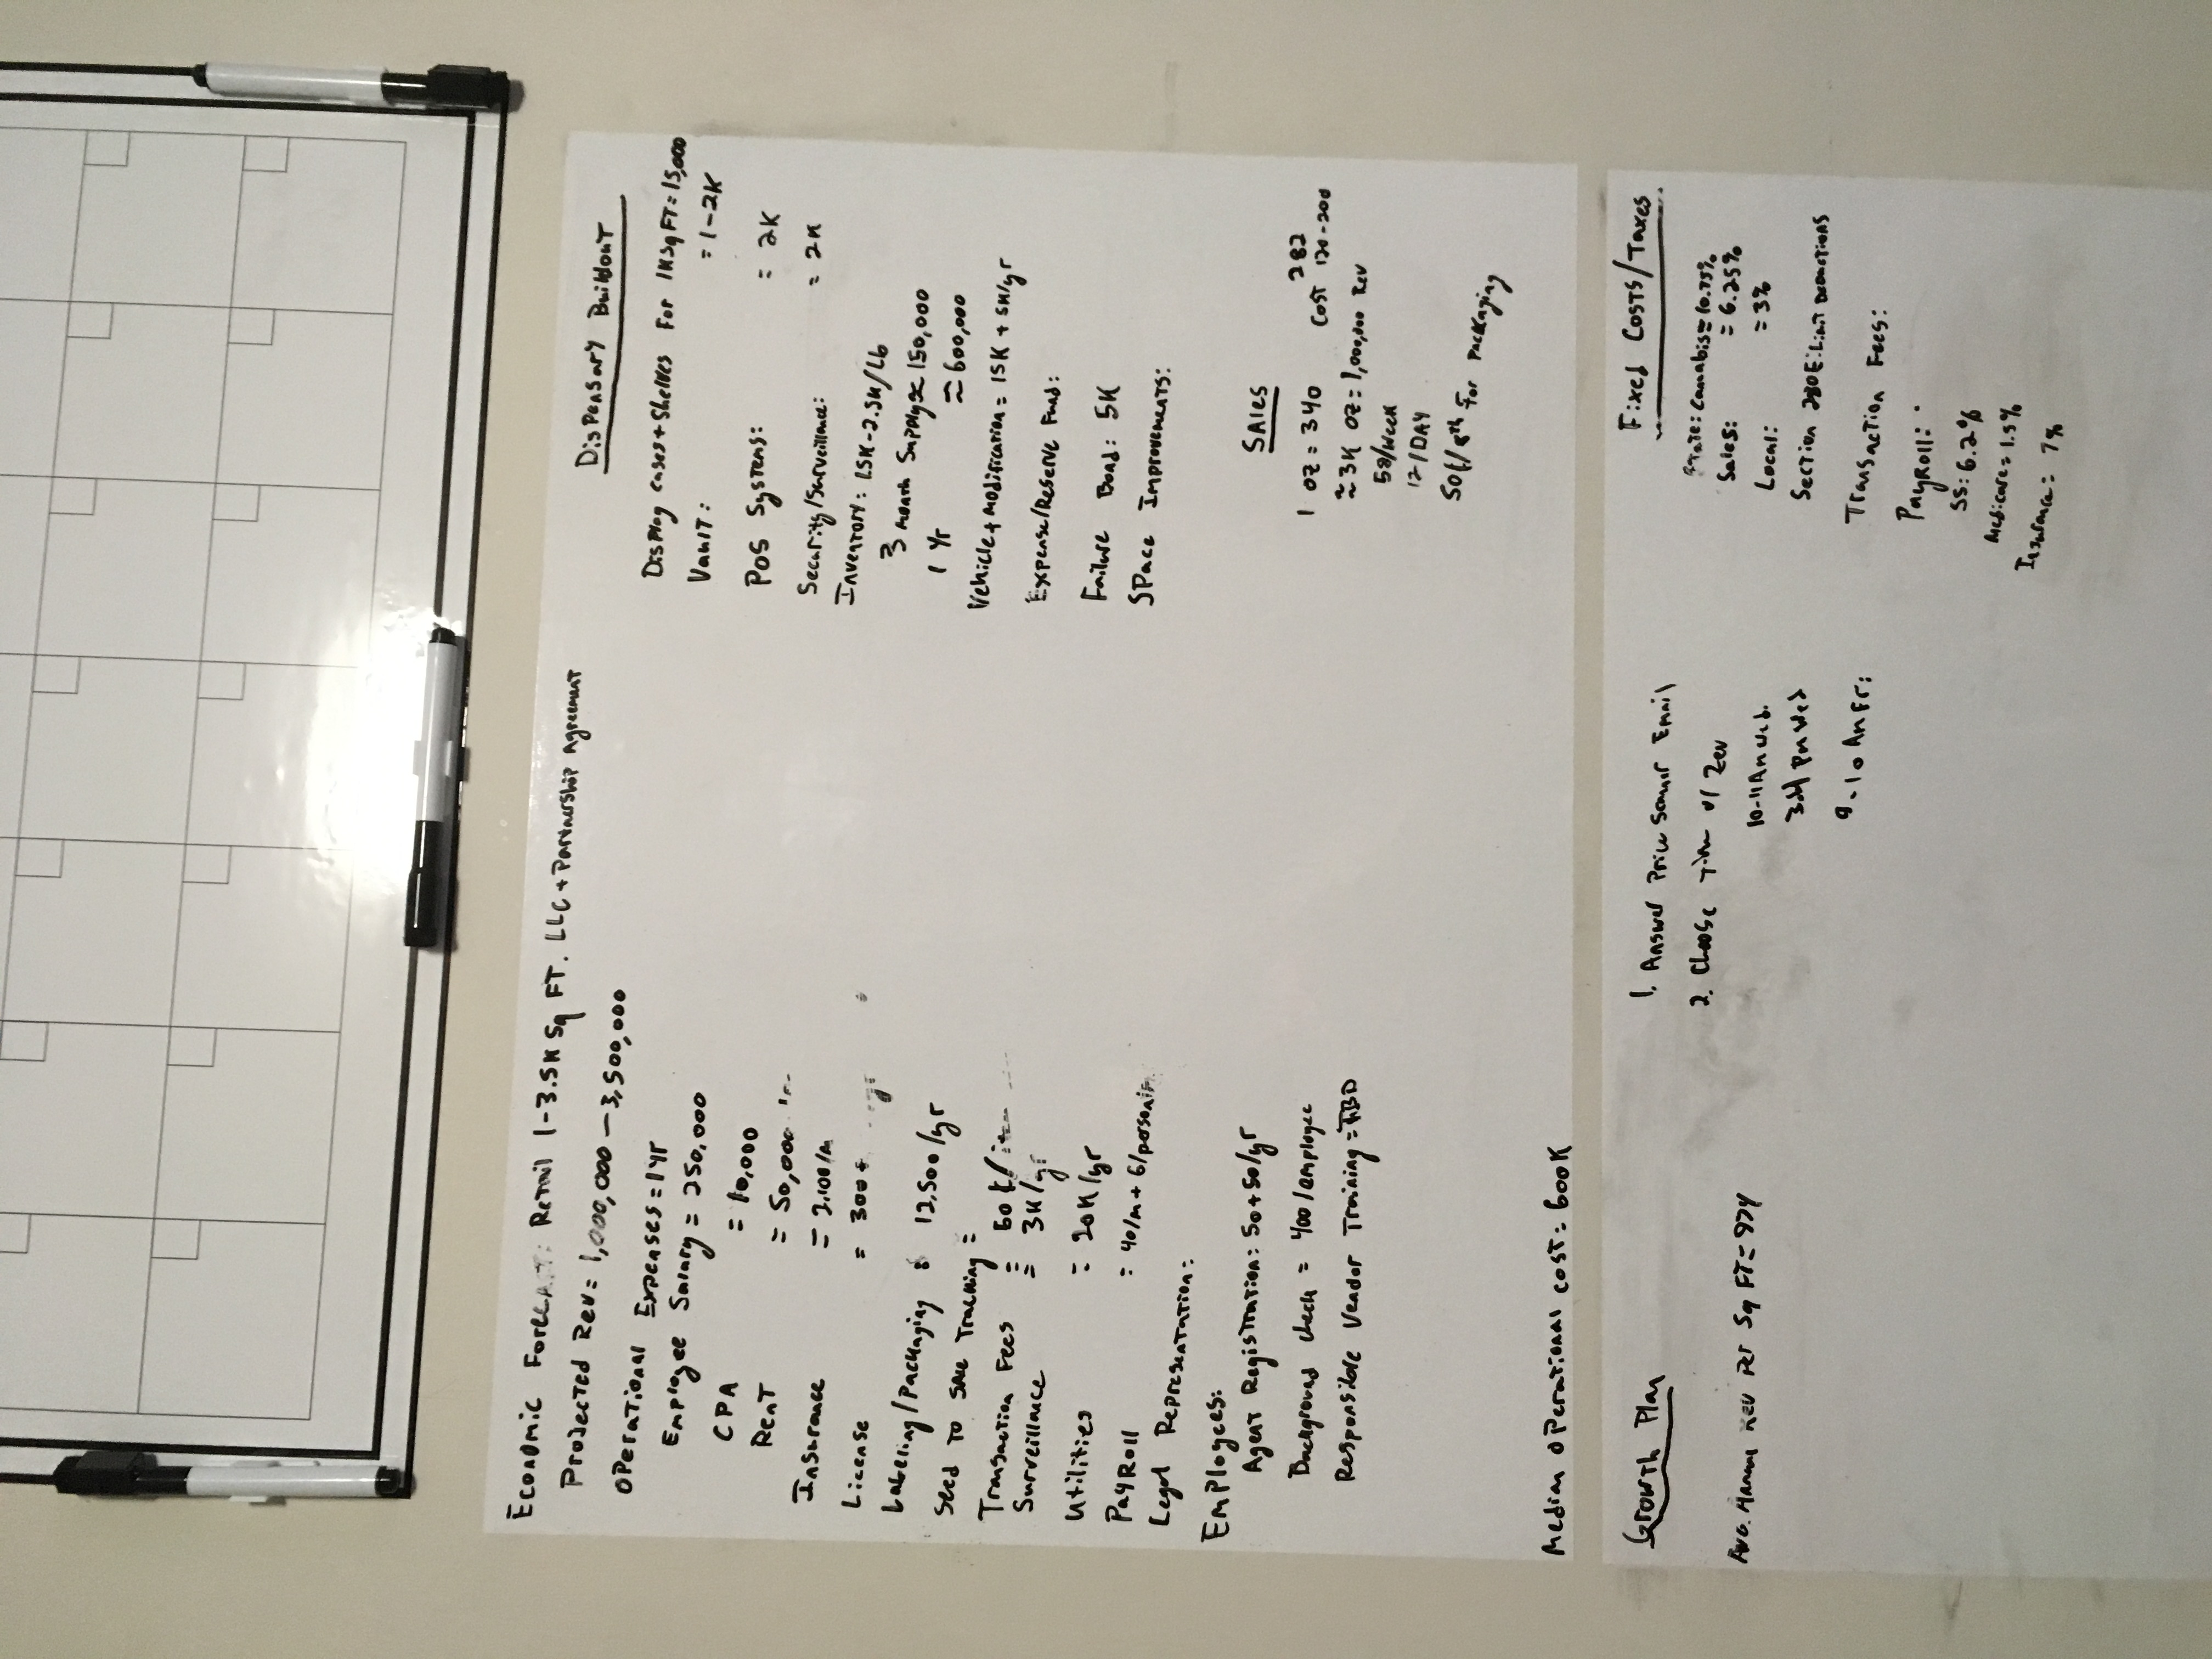 Economic Forecast: Retail 1-3.5K Sq FT. LLC + Partnership Agreement
Projected Rev = 1,000,000 — 3,500,000
Operational Expenses = 1yr
Employee Salary = 250,000
CPA = 10,000
Rent = 50,000
Insurance = 2,100/m
License = 300+
Labeling/Packaging : 12,500/yr
Seed To Sale Tracking =
Transaction Fees =
Surveillance = 3K/yr
Utilities = 20K/yr
PayRoll = 40/m + 6/person/m
Legal Representation:
Employees:
Agent Registration: 50+50/yr
Background Check = 400/employee
Responsible Vendor Training = TBD
Median Operational Cost: 600K
Dispensary Buildout
Display cases + Shelves For 1K Sq FT = 15,000
Vault: = 1-2K
POS Systems: = 2K
Security/Surveillance: = 2K
Inventory: 1.5K-2.5K/Lb
3 month Supply ≈ 150,000
1 Yr ≈ 600,000
Vehicle + Modification = 15K + 5K/yr
Expense/Reserve Fund:
Failure Bond: 5K
Space Improvements:
Sales
282
1 oz = 340 Cost 120-200
≈3K oz = 1,000,000 Rev
58/Week
12/DAY
50¢/8th For Packaging
Growth Plan
Avg. Annual Rev Per Sq FT = 974
1. Answer Email
2. Choose Time w/ Zev
10-11 Am Wed.
3-4 pm Wed
9-10 Am Fri
Fixed Costs/Taxes
State: Cannabis = 10.75%
Sales: = 6.25%
Local: = 3%
Section 280E: Limit Deductions
Transaction Fees:
Payroll:
SS: 6.2%
Medicare = 1.5%
Insurance: 7%